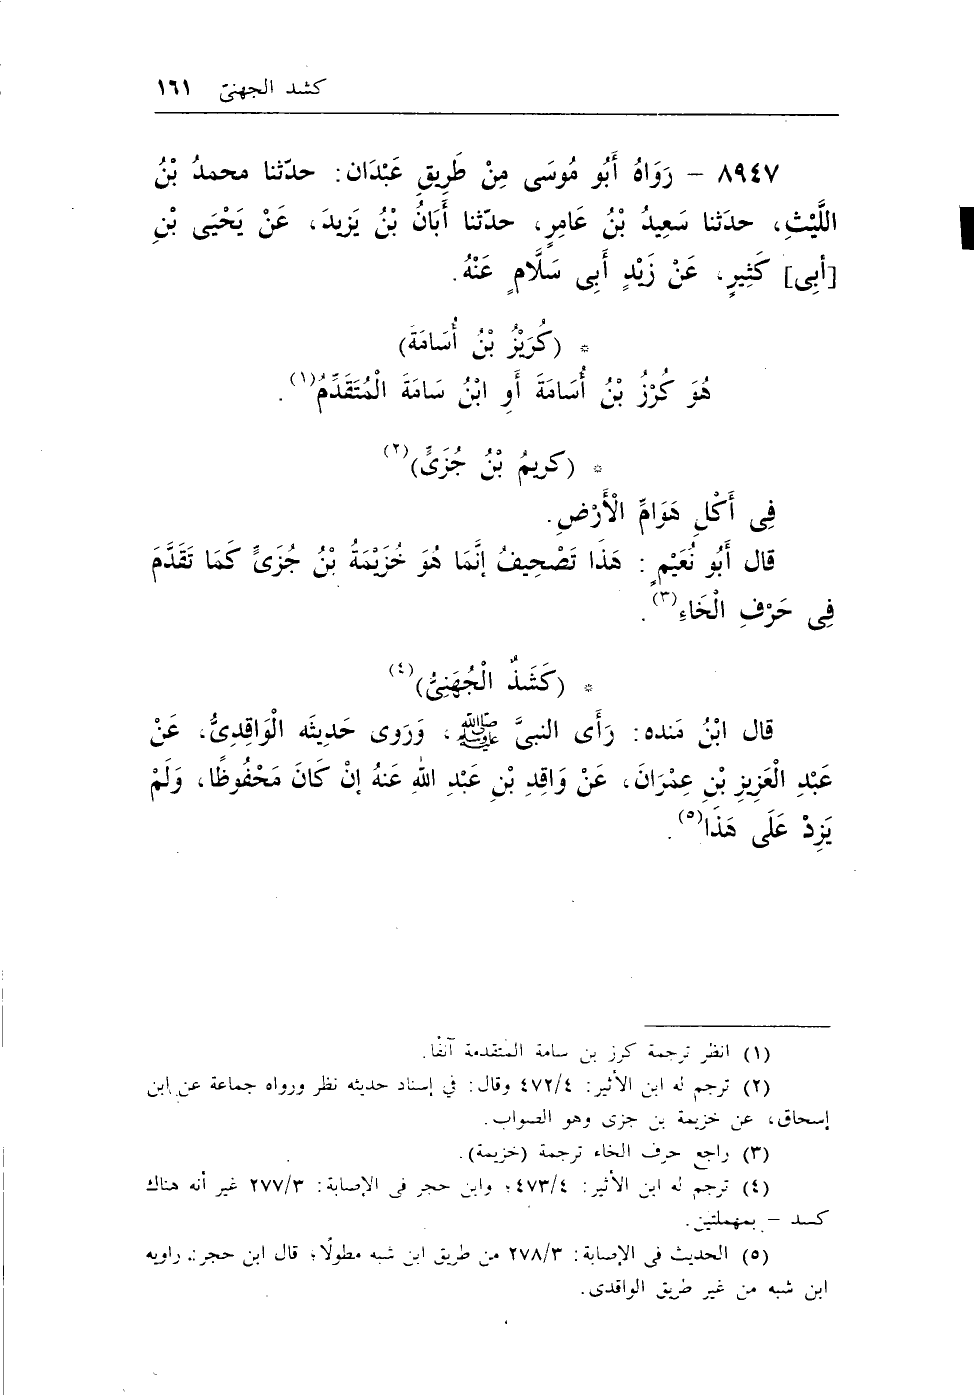 كشد الجهنىّ ١٦١
٨٩٤٧ – رَوَاهُ أَبُو مُوسَى مِنْ طَرِيقِ عَبْدَان: حدّثنا محمدُ بْنُ
اللَّيْثِ، حدَثنا سَعِيدُ بْنُ عَامِرٍ، حدّثنا أَبَانُ بْنُ يَزِيدَ، عَنْ يَحْيَى بْنِ
[أَبِى] كَثِيرٍ، عَنْ زَيْدٍ أَبِى سَلَّامٍ عَنْهُ.
* (كُرَيْزُ بْنُ أُسَامَةَ)
هُوَ كُرْزُ بْنُ أُسَامَةَ أَوِ ابْنُ سَامَةَ الْمُتَقَدِّمُ(١).
* (كريمُ بْنُ جُزَىٍّ)(٢)
فِى أَكْلِ هَوَامِّ الْأَرْضِ.
قال أَبُو نُعَيْمٍ: هَذَا تَصْحِيفُ إنَّمَا هُوَ خُزَيْمَةُ بْنُ جُزَىٍّ كَمَا تَقَدَّمَ
فِى حَرْفِ الْخَاءِ(٣).
* (كَشَدٌ الْجُهَنِىُّ)(٤)
قال ابْنُ مَنده: رَأَى النبىَّ ﷺ، وَرَوى حَدِيثَه الْوَاقِدِىُّ، عَنْ
عَبْدِ الْعَزِيزِ بْنِ عِمْرَانَ، عَنْ وَاقِدِ بْنِ عَبْدِ اللهِ عَنهُ إنْ كَانَ مَحْفُوظًا، وَلَمْ
يَزِدْ عَلَى هَذَا(٥).
(١) انظر ترجمة كرز بن سامة المتقدمة آنفًا.
(٢) ترجم له ابن الأثير: ٤٧٢/٤ وقال: في إسناد حديثه نظر ورواه جماعة عن ابن
إسحاق، عن خزيمة بن جزى وهو الصواب.
(٣) راجع حرف الخاء ترجمة (خزيمة).
(٤) ترجم له ابن الأثير: ٤٧٣/٤؛ وابن حجر فى الإصابة: ٢٧٧/٣ غير أنه هناك
كسد – بمهملتين.
(٥) الحديث فى الإصابة: ٢٧٨/٣ من طريق ابن شبه مطولًا؛ قال ابن حجر: راويه
ابن شبه من غير طريق الواقدى.